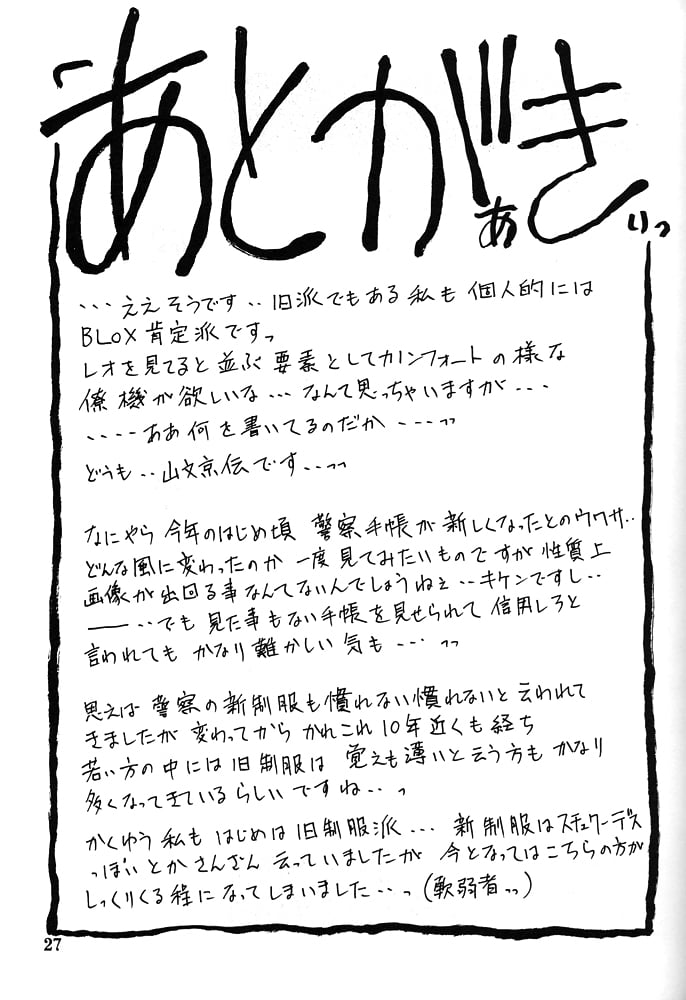 あとがき
あぁ いっ
・・・ええそうです・・旧派でもある私も 個人的には
BLOX肯定派ですっ
レオを見てると並ぶ要素としてカノンフォートの様な
僚機が欲しいな・・・なんて思っちゃいますが・・・
・・・・ああ何を書いてるのだか・・・っっ
どうも・・山文京伝です・・っっ
なにやら今年のはじめ頃 警察手帳が新しくなったとのウワサ・・
どんな風に変わったのか 一度見てみたいものですが性質上
画像が出回る事なんてないんでしょうねぇ・・キケンですし・・
――・・でも 見た事もない手帳を見せられて 信用しろと
言われても かなり難かしい気も・・・っっ
思えば 警察の新制服も慣れない慣れないと云われて
きましたが 変わってから かれこれ10年近くも経ち
若い方の中には旧制服は 覚えも薄いと云う方も かなり
多くなってきているらしいですね・・っ
かくゆう私も はじめは旧制服派・・・ 新制服はスチュワーデス
っぽいとかさんざん云っていましたが 今となってはこちらの方が
しっくりくる程になってしまいました・・っ(軟弱者っっ)
27